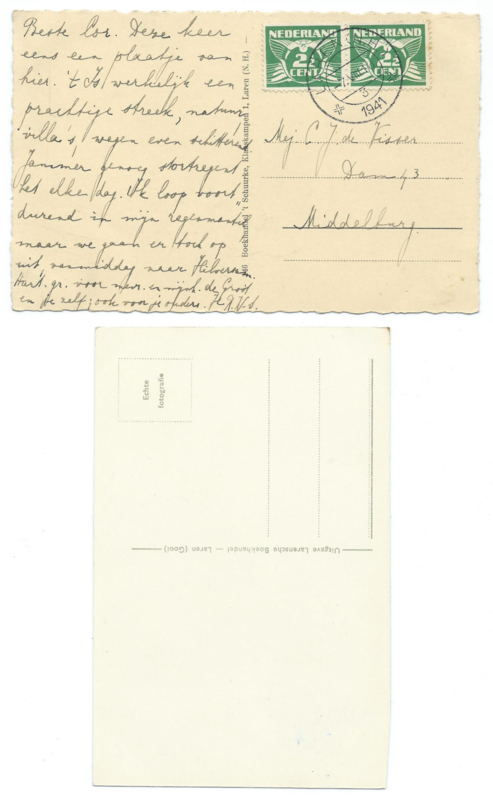 Beste Cor. Deze keer
eens een plaatje van
hier. 't Is werkelijk een
prachtige streek, natuur
villa's, wegen even schitterend
Jammer genoeg stortregent
het elke dag. Ik loop voort
durend in mijn regenmantel
maar we gaan er toch op
uit vanmiddag naar Hilversum.
Hart. gr. voor mevr. en mijnh. de Groot
en je zelf; ook voor je ouders.
46 Boekhandel 't Schuurke, Kloskampen 1, Laren (N. H.)
NEDERLAND
2½
CENT
NEDERLAND
2½
CENT
3
1941
Mej. C. J. de Visser
Dam 43
Middelburg
Echte
fotografie
Uitgave Larensche Boekhandel — Laren (Gooi)